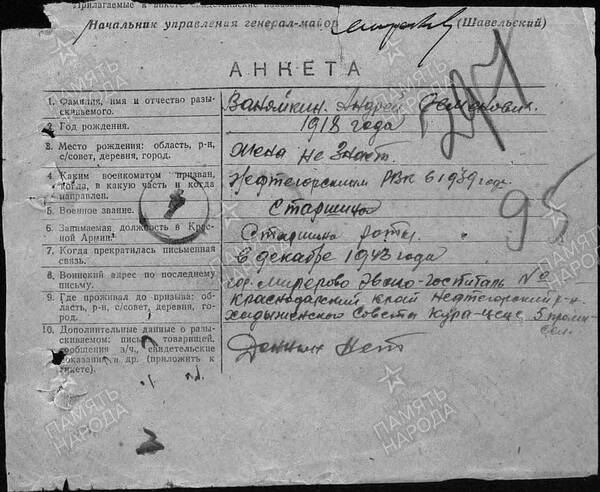 Прилагаемые к анкете свидетельские показания
Начальник управления генерал-майор (Шавельский)
АНКЕТА
297
1. Фамилия, имя и отчество разыскиваемого.
Ваняйкин Андрей Семенович.
2. Год рождения.
1918 года
3. Место рождения: область, р-н, с/совет, деревня, город.
Жена не знает.
4. Каким военкоматом призван, когда, в какую часть и когда направлен.
Нефтегорским РВК в 1939 году
5. Военное звание.
Старшина
95
6. Занимаемая должность в Красной Армии.
Старшина роты.
7. Когда прекратилась письменная связь.
В декабре 1943 года
8. Воинский адрес по последнему письму.
гор. Эвако-госпиталь №
9. Где проживал до призыва: область, р-н, с/совет, деревня, город.
Краснодарский край Нефтегорский р-н
Хадыженского Совета Кура-цеце 5 промысел.
10. Дополнительные данные о разыскиваемом: письма товарищей, сообщения в/ч., свидетельские показания и др. (приложить к анкете).
нет
ПАМЯТЬ НАРОДА